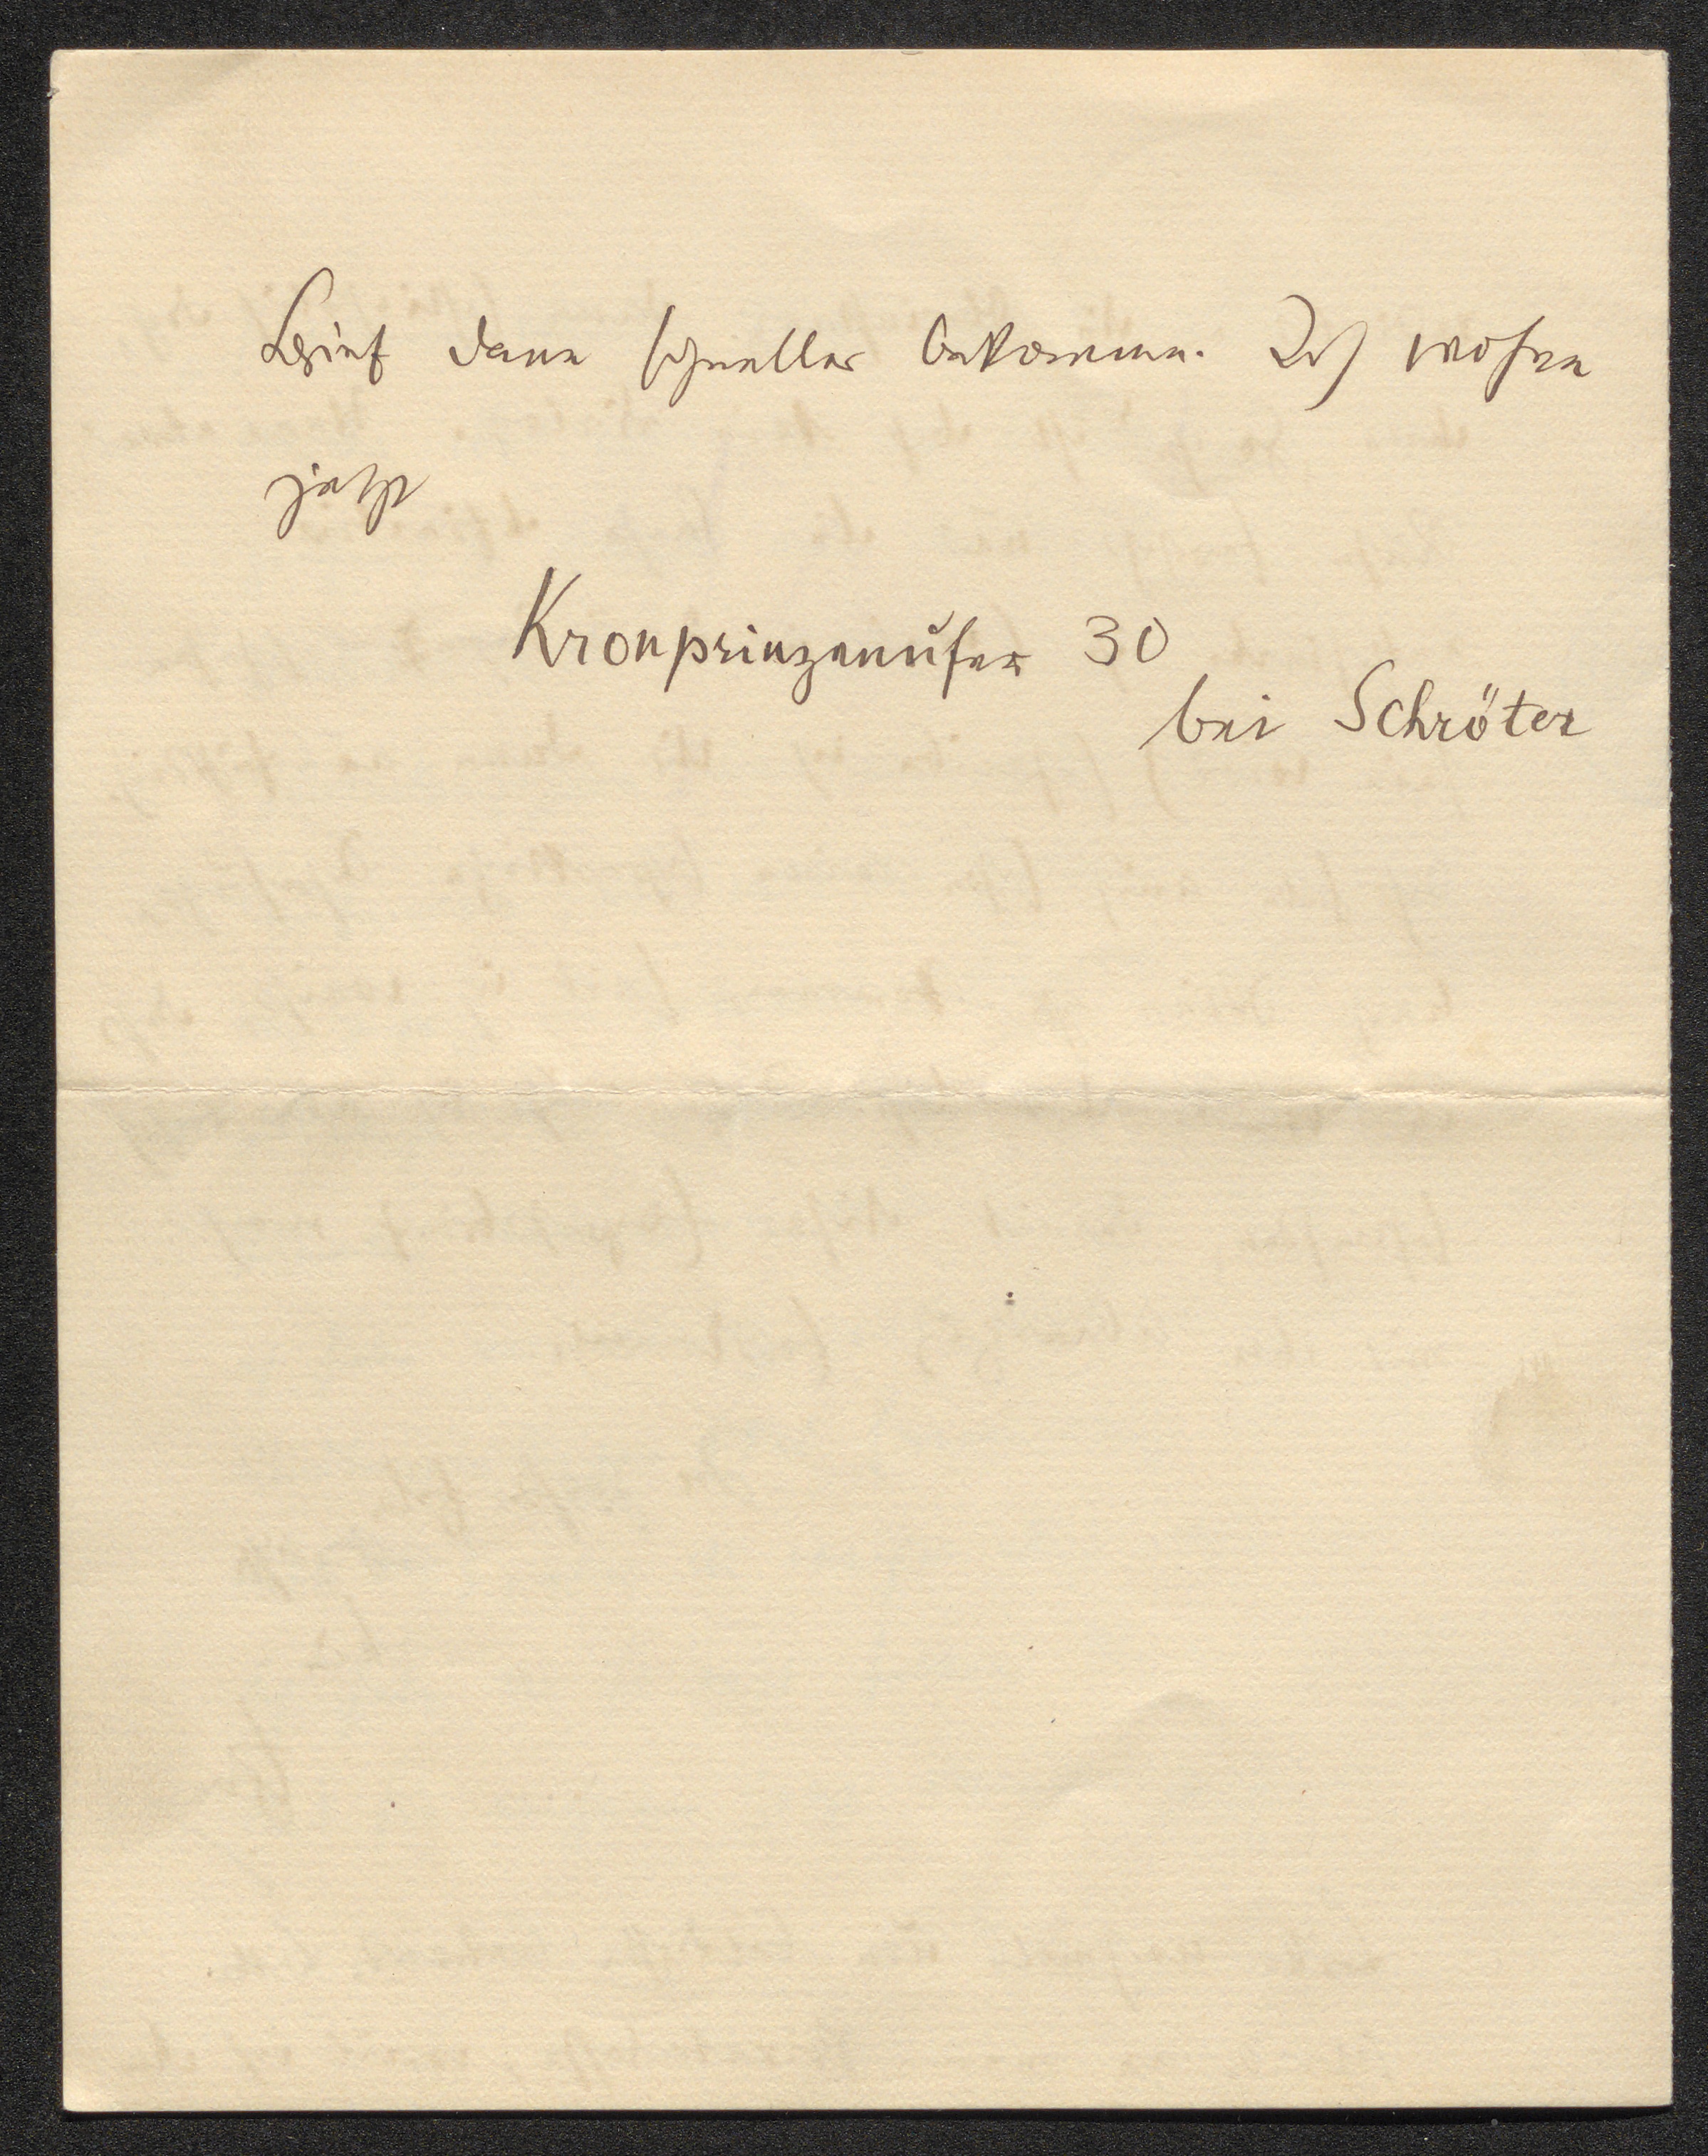 Brief dann schneller bekomme. Ich wohne
jetzt
Kronprinzenufer 30
bei Schröter